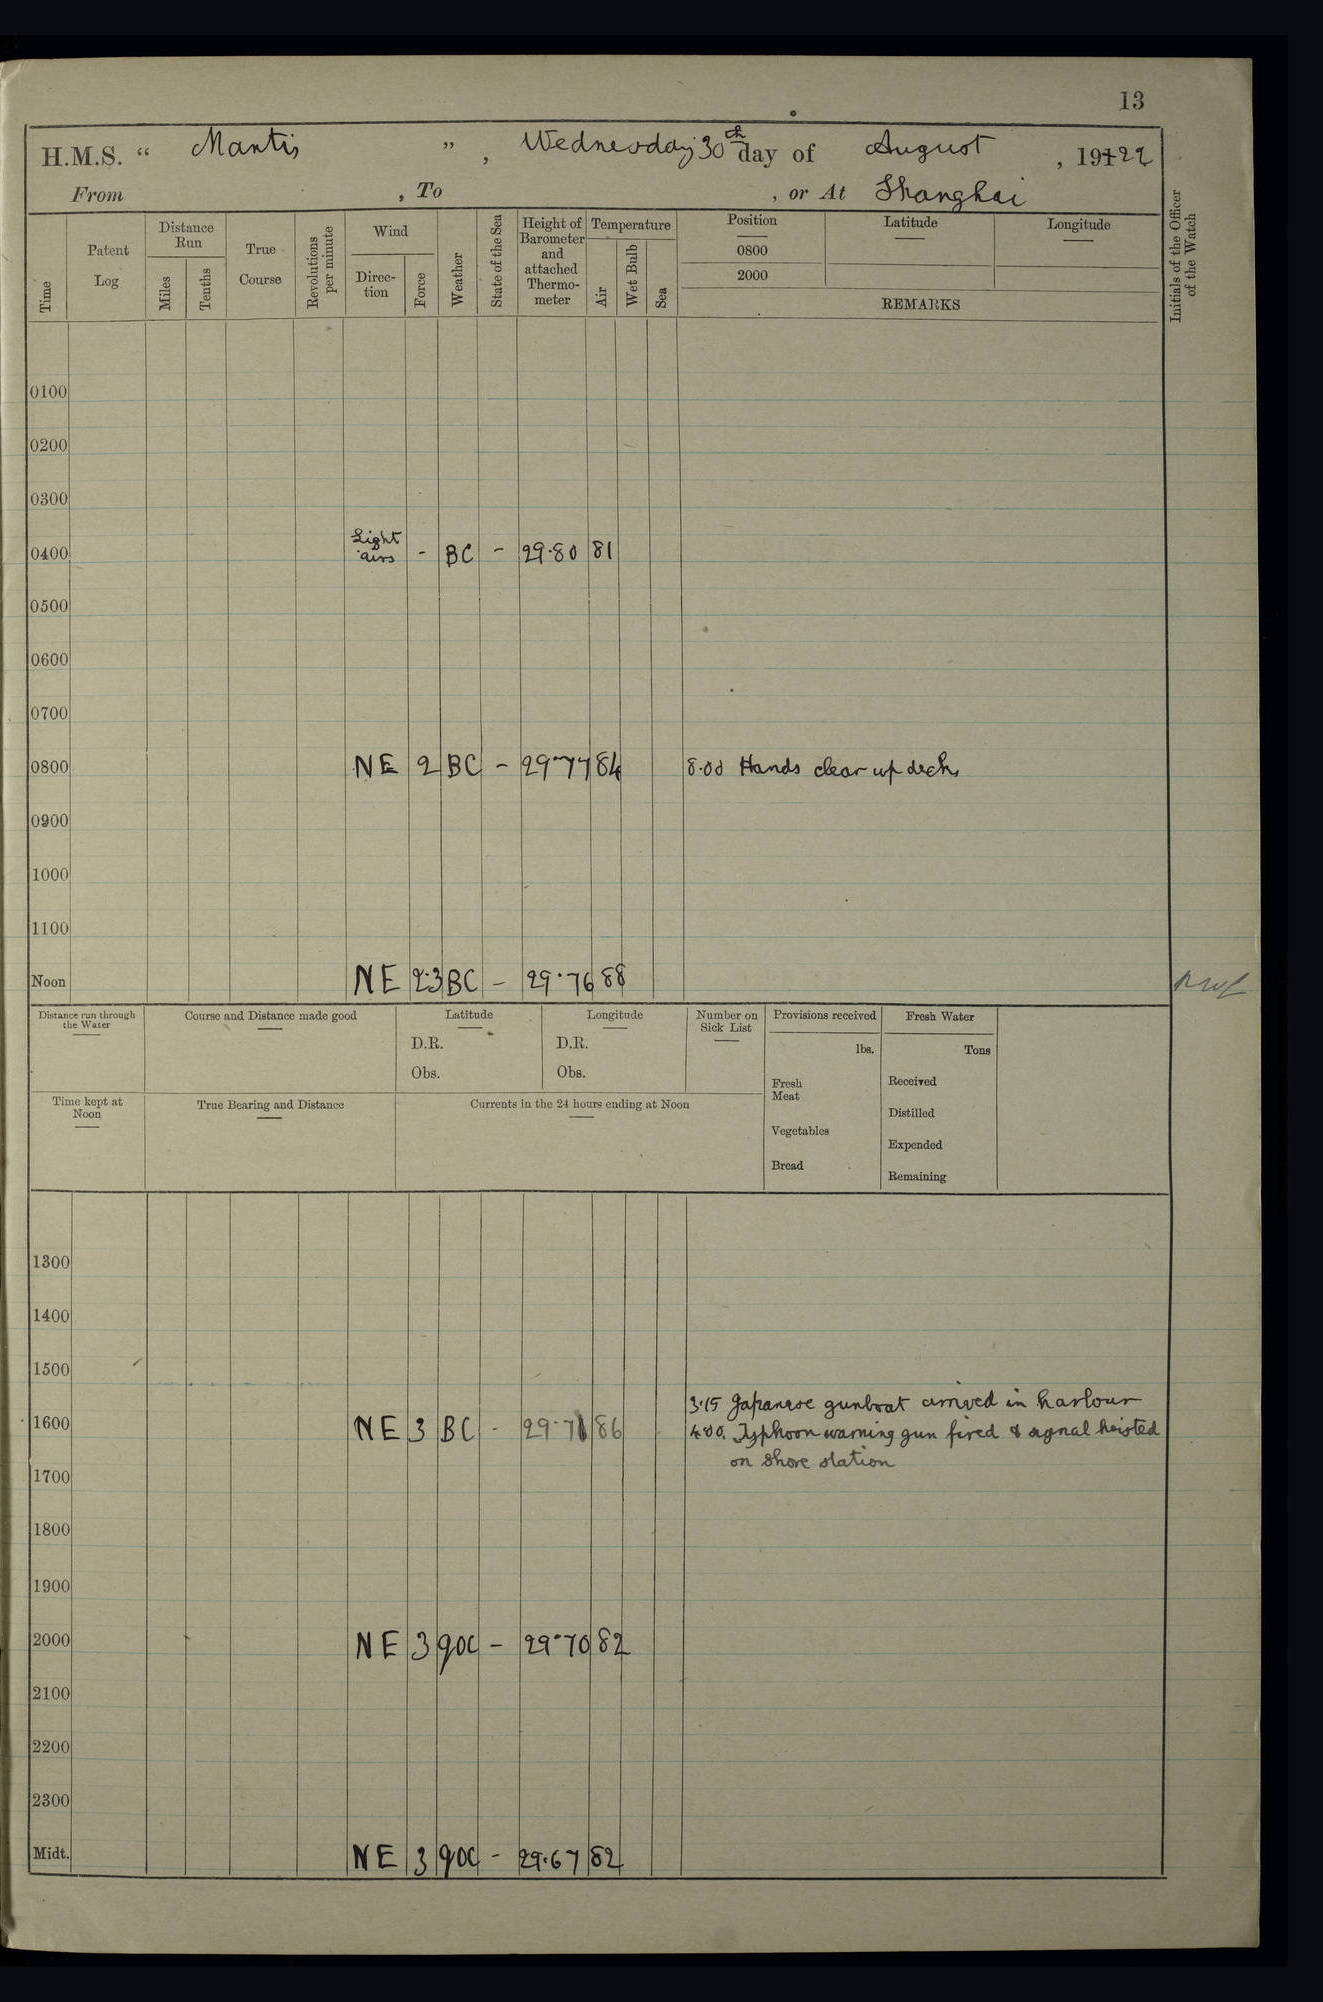 13
H.M.S. “ Mantis ” , Wednesday 30th day of August , 191 22
From , To , or At Shanghai
Time
Patent Log
Distance Run
Miles
Tenths
True Course
Revolutions per minute
Wind
Direc-tion
Force
Weather
State of the Sea
Height of Barometer and attached Thermo-meter
Temperature
Air
Wet Bulb
Sea
Position
0800
2000
Latitude
Longitude
REMARKS
Initials of the Officer of the Watch
0100
0200
0300
0400 Light airs - BC - 29.80 81
0500
0600
0700
0800 NE 2 BC - 29.77 84 8.00 Hands clear up decks
0900
1000
1100
Noon NE 2.3 BC - 29.76 88
Distance run through the Water
Course and Distance made good
Latitude
D.R.
Obs.
Longitude
D.R.
Obs.
Number on Sick List
Provisions received
lbs.
Fresh Meat
Vegetables
Bread
Fresh Water
Tons
Received
Distilled
Expended
Remaining
Time kept at Noon
True Bearing and Distance
Currents in the 24 hours ending at Noon
1300
1400
1500
3.15 Japanese gunboat arrived in harbour
1600 NE 3 BC - 29.71 86 4.00. Typhoon warning gun fired & signal hoisted
on shore station
1700
1800
1900
2000 NE 3 qoc - 29.70 82
2100
2200
2300
Midt. NE 3 qoc - 29.67 82